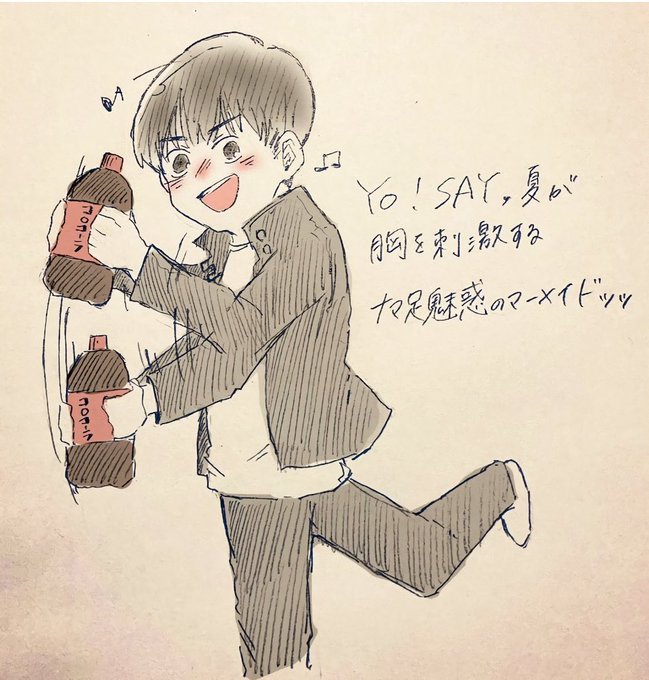 Yo! SAY, 夏が
胸を刺激する
ナマ足魅惑のマーメイドッッ
コロコーラ
コロコーラ